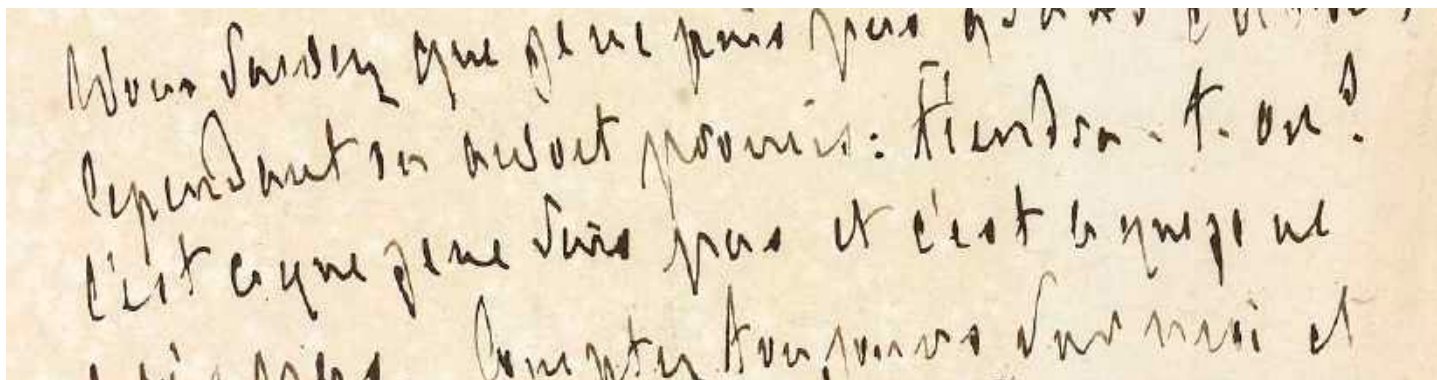 Vous savez que je ne puis pas
Cependant on avoit promis : tiendra-t-on?
C'est ce que je ne sais pas et c'est ce que je ne
pas. Comptez toujours sur moi et